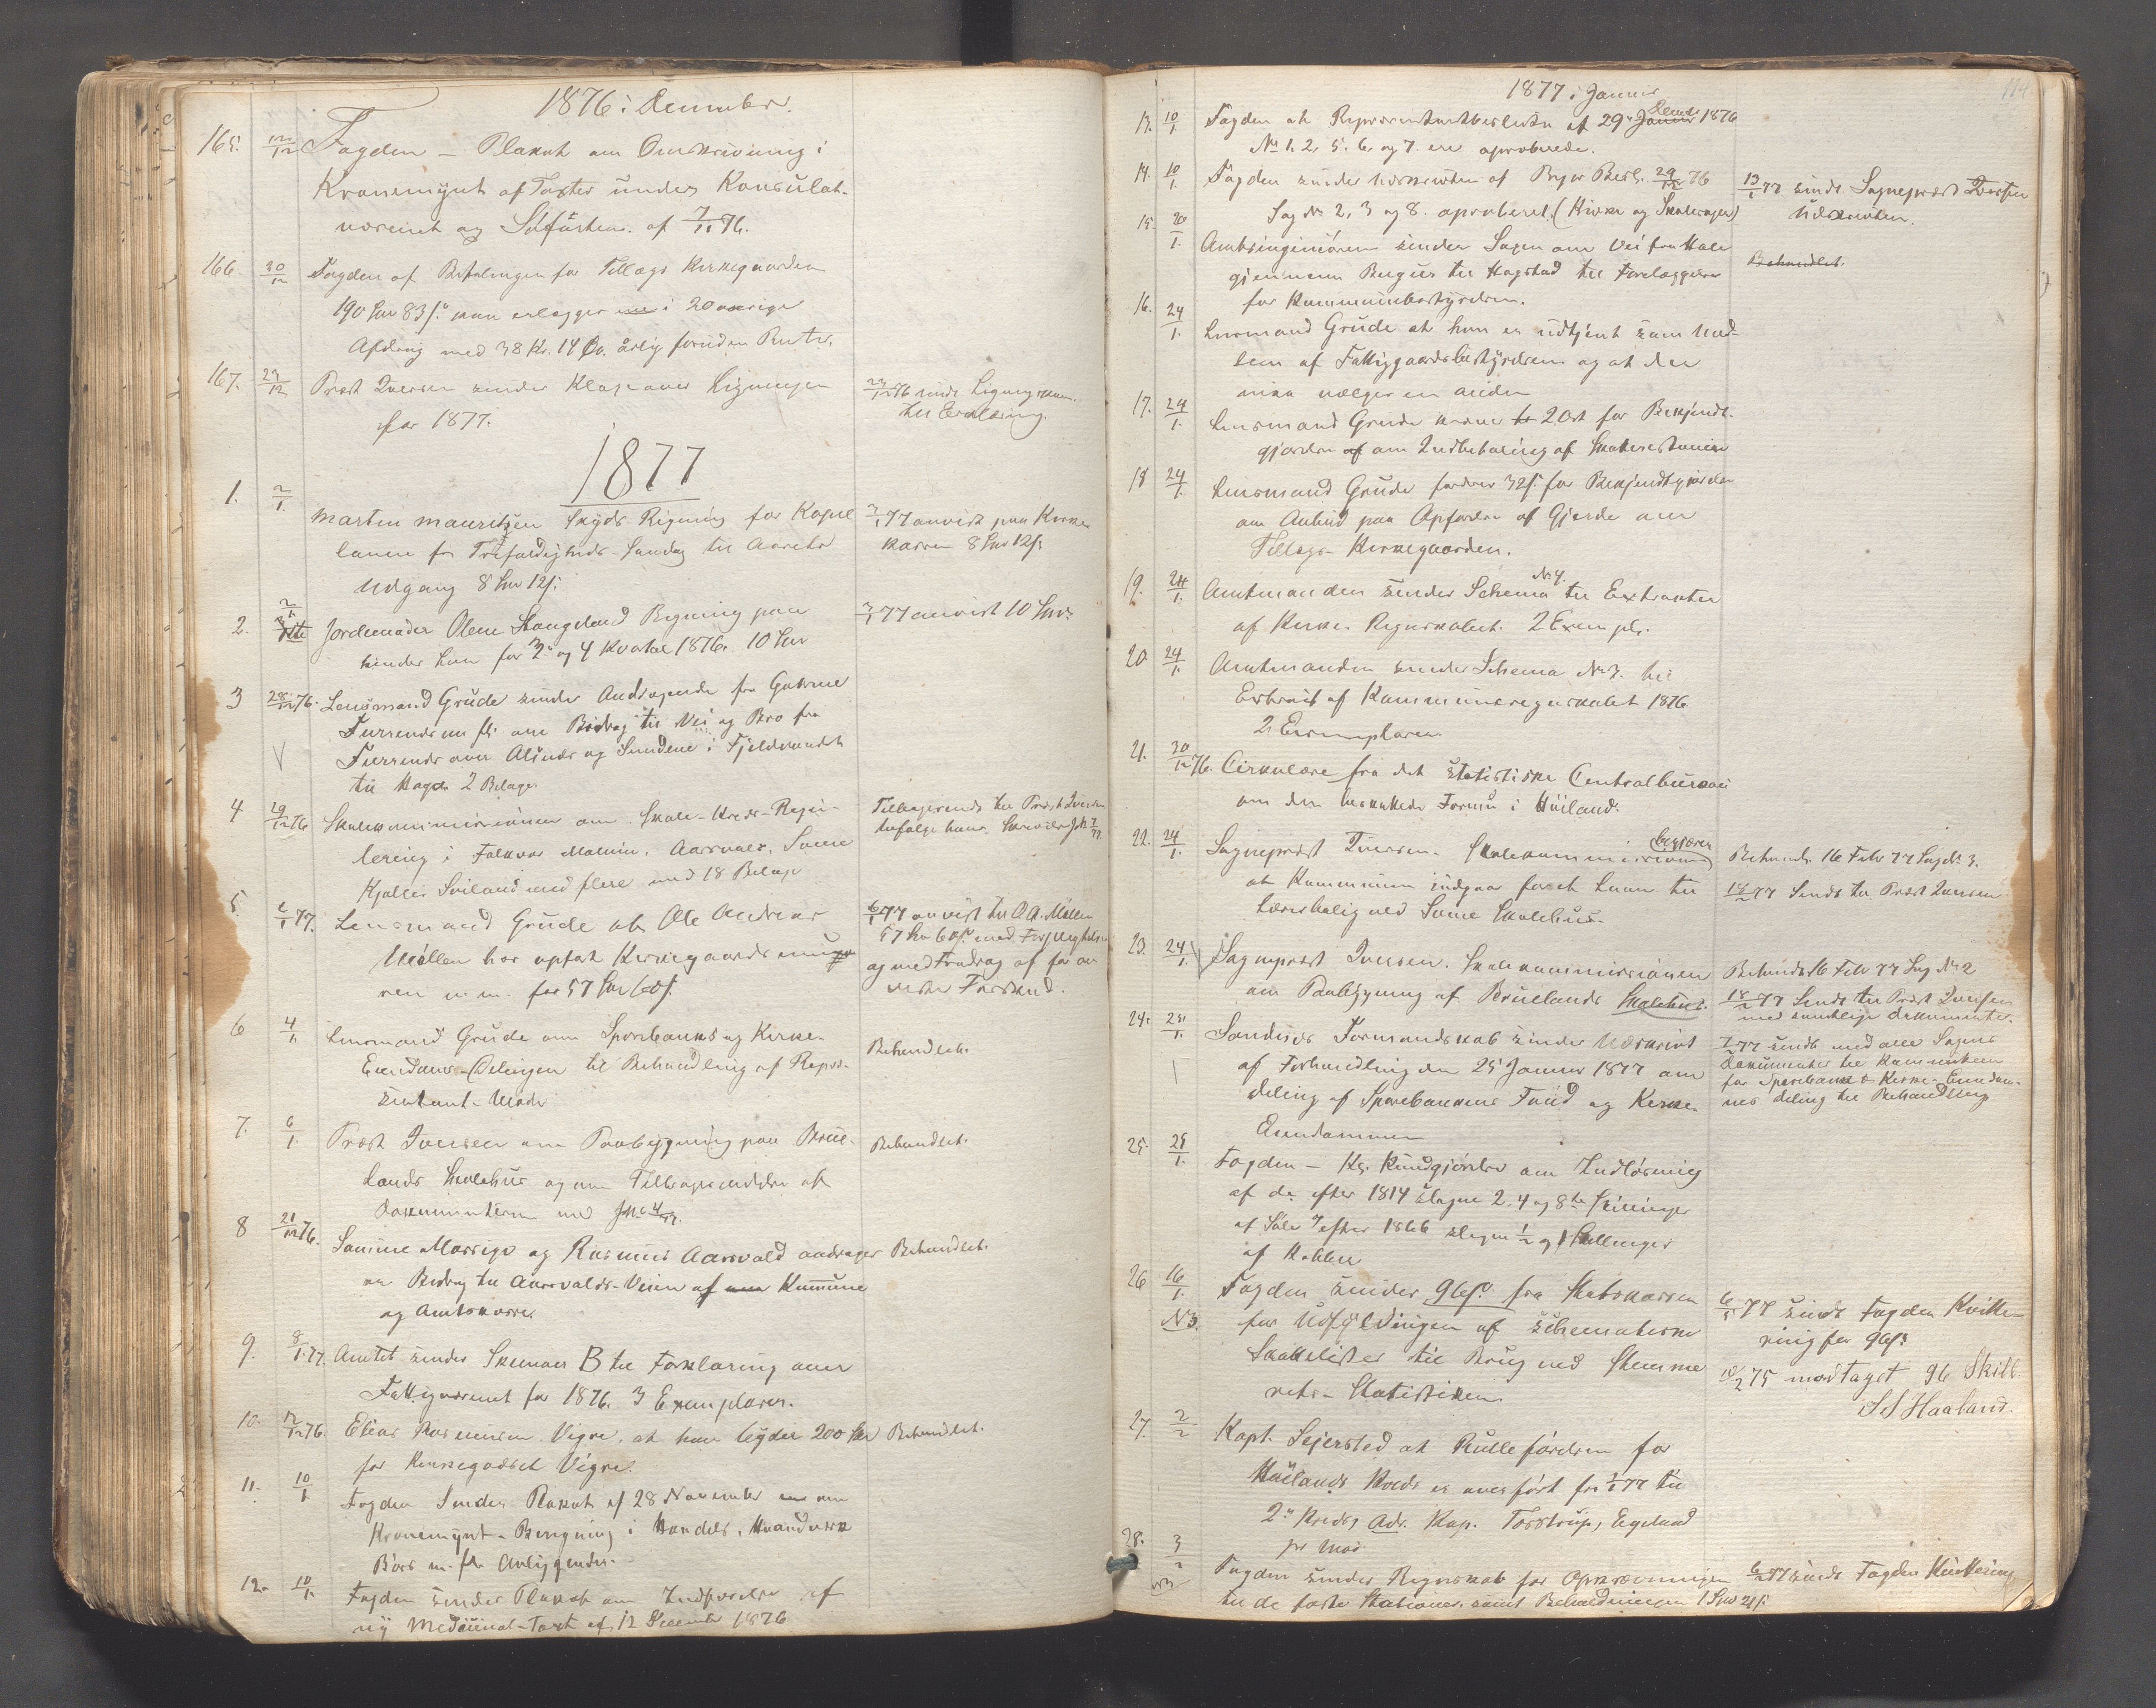 1876 i December.
165. 12/12 Fogden – Plakat om Omskrivning i
Kronemynt af Taxter under Konsulat-
væsenet og Söfarten. af 7/11 76.
166. 30/12 Fogden af Betalingen for Tillægs Kirkegaarden
190 Spd 83 s. kan erlægges i 20 aarige
Afdrag med 38 Kr. 14 Ör. årlig foruden Renter.
167. 23/12 Præst Iversen sender Klage over Ligningen
for 1877.
23/12 76 sendt Ligningskom.
til Erklæring.
1877
1. 2/1. Martin Mauritzen Skyds Regning for Kapel
lanen fra Trefoldigheds-Sundag til Aarets
Udgang 8 Spd 12 s.
3/1 77 anvist paa Kirke
kassen 8 Spd 12 s.
2. 2/1 Jordemoder Olene Stangeland Regning paa
hendes Løn for 3. og 4 Kvartal 1876. 10 Spd
3/1 77 anvist 10 Spd.
3 28/12 76. Lensmand Grude sender Andragende fra Gabriel
Fursendnes fl. om Bidrag til Vei og Bro fra
til Hage 2 Bilage
4 29/12 76 Skolekommissionen om Skole-Kreds-Regu-
lering i Folkvor Malmin, Aarsvoll, Sume
Kjosler Sviland med flere med 18 Bilage
Tilbagesendt til Præst Iversen
ifølge hans Skrivelse
5. 6/1 77. Lensmand Grude at Ole Andreas
Möllen har opført Kirkegaardsmu
ren m. m. for 57 Spd 60 s.
6/1 77 anvist til O A. Möllen
57 Spd 60 s. med
og med Fradrag af for
Forskud.
6 4/1. Lensmand Grude om Sparebanks og Kirke-
Eiendoms-Delingen til Behandling af Repræ-
sentant-Møde
Behandlet.
7. 6/1. Præst Iversen om Paabygning paa Brue-
lands Skolehus og om Tilbagesendelse af
Dokumenterne med
Behandlet.
8 21/12 76. Somme Mossige og Rasmus Aarsvold andrager
om Bidrag til Aarsvolds-Veien af Kommune
og Amtskasse.
Behandlet.
9. 8/1 77. Amtet sender Skemaer B til Forklaring over
Fattigvæsenet for 1876. 3 Exemplarer.
10. 12/12 76. Elias Rasmussen Vigre, at han byder 200 Spd
for Kirkegodset Vigre.
Behandlet.
11. 10/1 Fogden Sender Plakat af 28 November om
Kronemynt-Beregning i Handels, Haandværk
Börs m. fl. Anliggender.
12. 10/1. Fogden sender Plakat om Indförelse af
ny Medicinal-Taxt af 12 December 1876
114
1877 i Januar
13. 10/1. Fogden at Repræsentantbeslutn. af 29. Januar Decbr 1876
No 1. 2. 5. 6. og 7. ere aproberede.
14. 10/1. Fogden sender Udskriften af Repr Besl. 29/12 76
Sag No 2, 3 og 8. aproberet (Kirke og Skolesager)
13/1 77 sendt Sogneprest Iversen
Udskriften.
15. 20/1. Amtsingeniören sender Sagen om Vei fra Hale
gjennem Bugier til Hogstad til Forelæggelse
for Kommunebestyrelsen.
Behandlet.
16. 24/1. Lensmand Grude at han er udtjent som Med-
lem af Fattiggaardsbestyrelsen og at der
maa vælges en anden
17. 24/1. Lensmand Grude krever 2 Ort for Bekjendt-
gjørelse af om Indbetaling af Skatterestancer
18 24/1. Lensmand Grude fordrer 32 s. for Bekjendtgjørelse
om Anbud paa Opførelse af Gjerde om
Tillægs-Kirkegaarden.
19. 24/1. Amtmanden sender Schema No 4. til Extrakter
af Kirke-Regnskabet. 2 Exempl.
20 24/1. Amtmanden sender Schema No 3. til
Extract af Kommuneregnskabet 1876
2 Exemplarer
21. 30/12 76. Cirkulære fra det statistiske Centralbureau
om den beskattede Formue i Höiland.
22. 24/1. Sogneprest Iversen. Skolekommissionen begjærer
at Kommunen indgaar for et Laan til
Lærerbolig ved Sume Skolehus.
Behandl. 16 Febr 77 Sag No 3.
18/2 77 Sendt til Præst Iversen
23. 24/1. Sogneprest Iversen. Skolekommissionen
om Paabygning af Bruelands Skolehus.
Behandlet 16 Febr 77 Sag No 2
18/2 77 Sendt til Præst Iversen
med samtlige Dokumenter.
24. Sandnes Formandskab sender Udskrift
af Forhandling den 25 Januar 1877 om
Deling af Sparebankens Fond og Kirke-
Eiendommen
77 sendt med alle Sagens
Dokumenter til Kommisionen
for Sparebank & Kirke-Eiendom-
nes Deling til Behandling
25. 25/1. Fogden – Kg. Kundgjörelse om Indlösning
af de efter 1814 slagne 2. 4 og 8te Skillinger
af Sölv & efter 1866 slagne 1/2 og 1 Skillinger
af Kobber
26 16/1. Fogden sender 96 s. fra Statskassen
No 3. for Udfyldingen af Schematerne
Skattelister til Brug ved Stemme
rets-Statistiken
6/5 77 sendt Fogden Kvitte-
ring for 96 s.
10/2 75 modtaget 96 Skill.
S S Haaland.
27. 2/2 Kapt. Sejersted at Rulleførelsen for
Höilands Kreds er overført fra 1/1 77 til
2. Kreds, Adr. Kap. Torstrup, Egeland
pr Mos
28. 3/2 Fogden sender Regnskab for Opkrævningen
til de faste Stationer samt Beholdningen 1 Spd 21 s.
6/2 77 sendt Fogden Kvittering